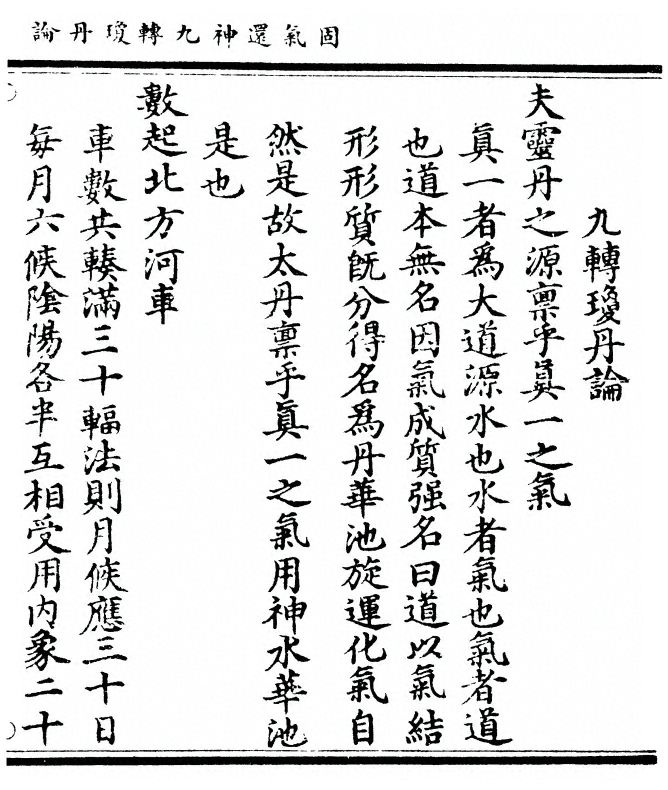 固氣還神九轉瓊丹論
九轉瓊丹論
夫靈丹之源禀乎眞一之氣
眞一者爲大道源水也水者氣也氣者道
也道本無名因氣成質强名曰道以氣結
形形質旣分得名爲丹華池旋運化氣自
然是故太丹禀乎眞一之氣用神水華池
是也
數起北方河車
車數共輳滿三十輻法則月候應三十日
每月六候陰陽各半互相受用内象二十